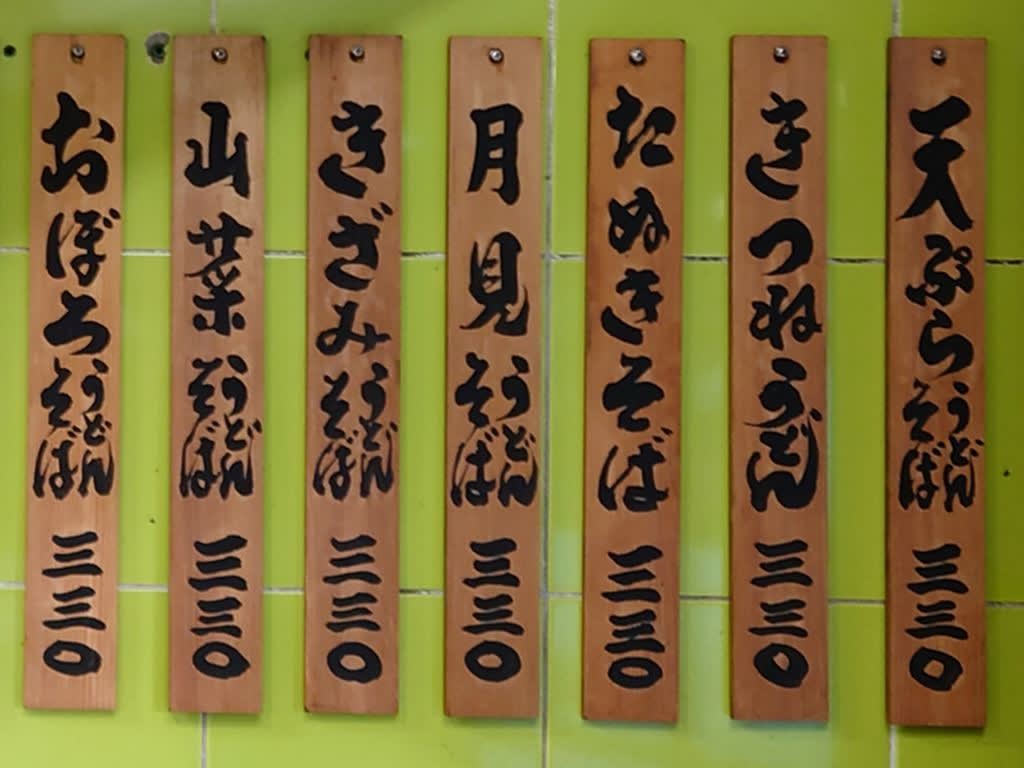 天ぷらうどんそば三三〇
きつねうどん三三〇
たぬきそば三三〇
月見うどんそば三三〇
きざみうどんそば三三〇
山菜うどんそば三三〇
おぼろうどんそば三三〇